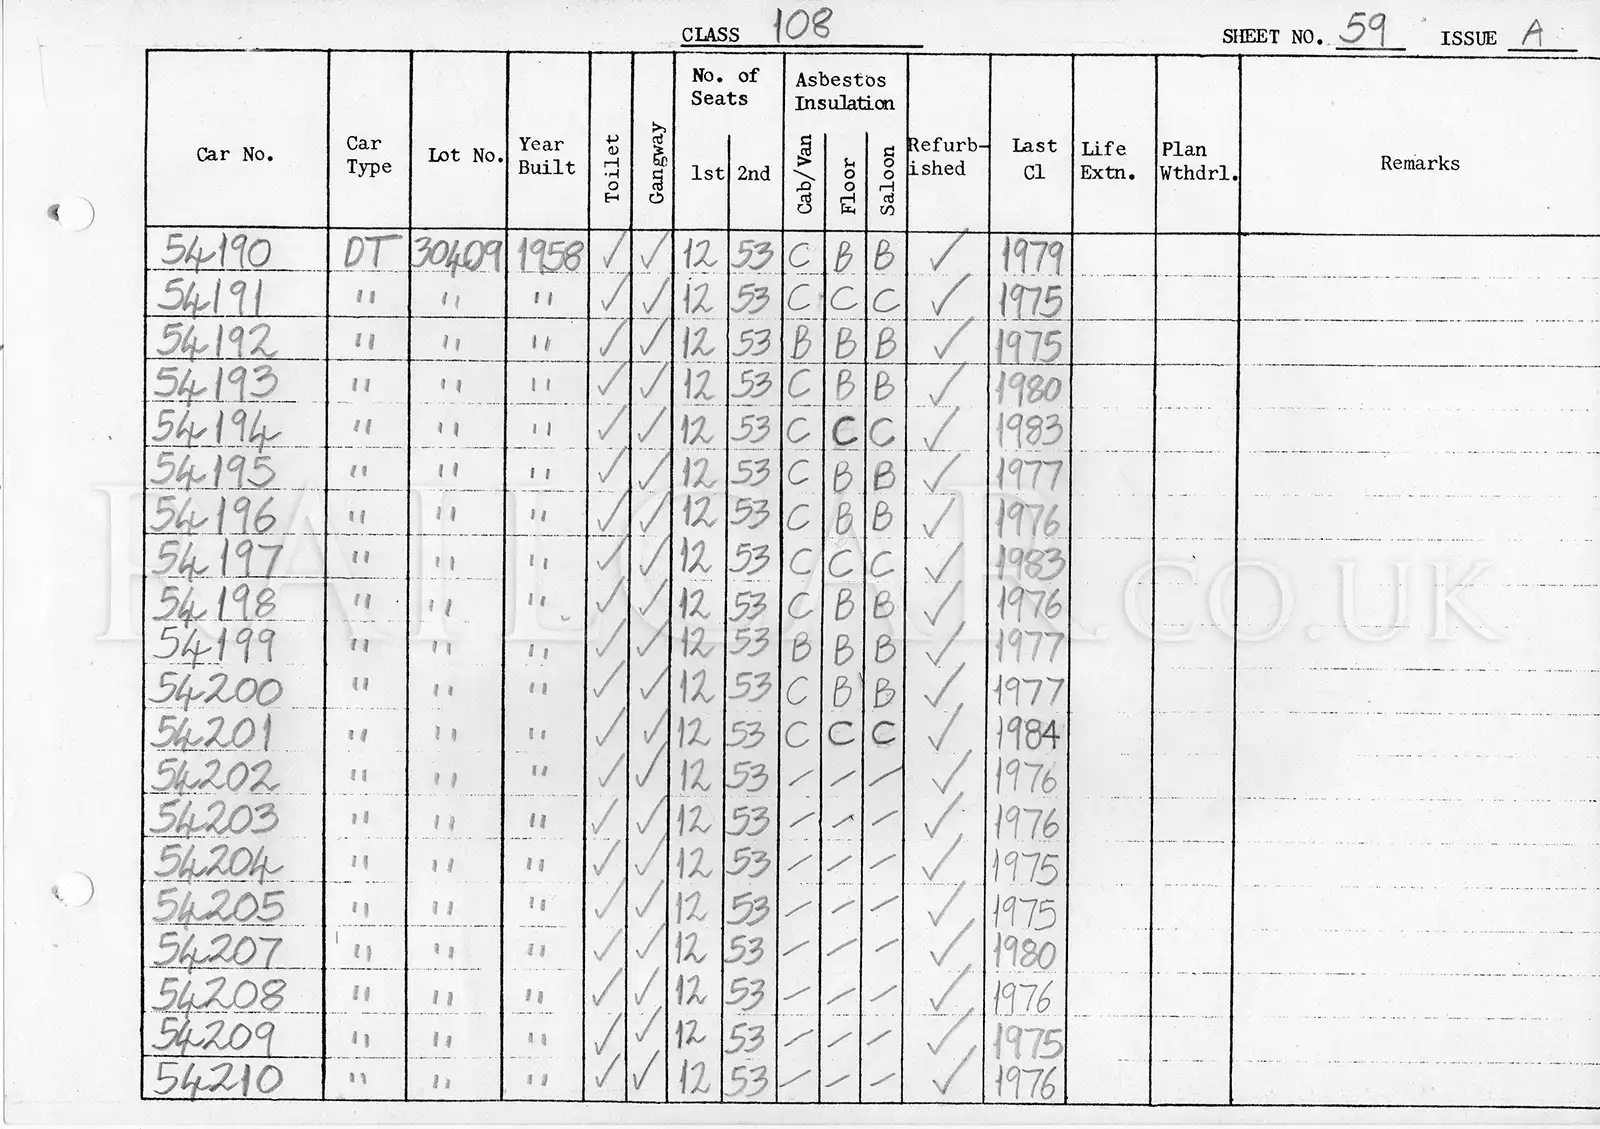 CLASS 108 SHEET NO. 59 ISSUE A
Car No. Car Type Lot No. Year Built Toilet Gangway No. of Seats 1st 2nd Asbestos Insulation Cab/Van Floor Saloon Refurb-ished Last Cl Life Extn. Plan Wthdrl. Remarks
54190 DT 30409 1958 ✓ ✓ 12 53 C B B ✓ 1979
54191 " " " ✓ ✓ 12 53 C C C ✓ 1975
54192 " " " ✓ ✓ 12 53 B B B ✓ 1975
54193 " " " ✓ ✓ 12 53 C B B ✓ 1980
54194 " " " ✓ ✓ 12 53 C C C ✓ 1983
54195 " " " ✓ ✓ 12 53 C B B ✓ 1977
54196 " " " ✓ ✓ 12 53 C B B ✓ 1976
54197 " " " ✓ ✓ 12 53 C C C ✓ 1983
54198 " " " ✓ ✓ 12 53 C B B ✓ 1976
54199 " " " ✓ ✓ 12 53 B B B ✓ 1977
54200 " " " ✓ ✓ 12 53 C B B ✓ 1977
54201 " " " ✓ ✓ 12 53 C C C ✓ 1984
54202 " " " ✓ ✓ 12 53 – – – ✓ 1976
54203 " " " ✓ ✓ 12 53 – – – ✓ 1976
54204 " " " ✓ ✓ 12 53 – – – ✓ 1975
54205 " " " ✓ ✓ 12 53 – – – ✓ 1975
54207 " " " ✓ ✓ 12 53 – – – ✓ 1980
54208 " " " ✓ ✓ 12 53 – – – ✓ 1976
54209 " " " ✓ ✓ 12 53 – – – ✓ 1975
54210 " " " ✓ ✓ 12 53 – – – ✓ 1976
RAILCAR.CO.UK